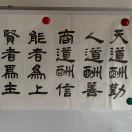 天道酬勤
人道酬善
商道酬信
能者為上
賢者為主